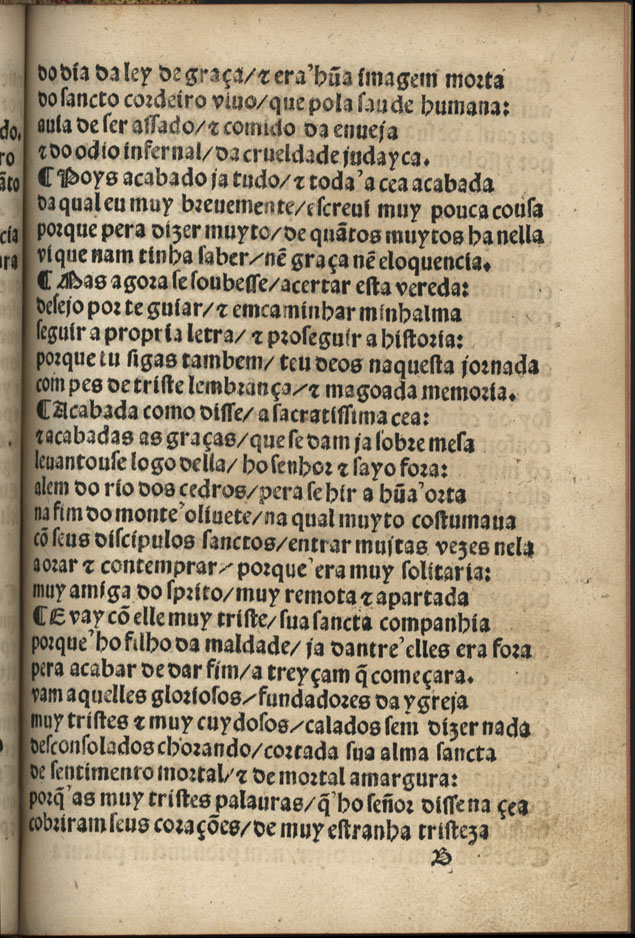 do dia da ley de graça/ ⁊ era'hũa imagem morta
do sancto cordeiro viuo/ que pola saude humana:
auia de ser assado/ ⁊ comido da enueja
⁊ do odio infernal/ da crueldade judayca.
¶ Poys acabado ja tudo/ ⁊ toda'a cea acabada
da qual eu muy breuemente/ escreui muy pouca cousa
porque pera dizer muyto/ de quãtos muytos ha nella
vi que nam tinha saber/ nẽ graça nẽ eloquencia.
¶ Mas agora se soubesse/ acertar esta vereda:
desejo por te guiar/ ⁊ emcaminhar minhalma
seguir a propria letra/ ⁊ proseguir a historia:
porque tu sigas tambem/ teu deos naquesta jornada
com pes de triste lembrança/ ⁊ magoada memoria.
¶ Acabada como disse/ a sacratissima cea:
⁊ acabadas as graças/ que se dam ja sobre mesa
leuantouse logo della/ ho senhor ⁊ sayo fora:
alem do rio dos cedros/ pera se hir a hũa'orta
na fim do monte'oliuete/ na qual muyto costumaua
cõ seus discipulos sanctos/ entrar mujtas vezes nela
a orar ⁊ contemprar/ porque'era muy solitaria:
muy amiga do sprito/ muy remota ⁊ apartada
¶ E vay cõ elle muy triste/ sua sancta companhia
porque'ho filho da maldade/ ja dantre'elles era fora
pera acabar de dar fim/ a treyçam q̃ começara.
vam aquelles gloriosos/ fundadores da ygreja
muy tristes ⁊ muy cuydosos/ calados sem dizer nada
desconsolados chorando/ cortada sua alma sancta
de sentimento mortal/ ⁊ de mortal amargura:
porq̃'as muy tristes palauras/ q̃'ho señor disse na çea
cobriram seus corações/ de muy estranha tristeza
B